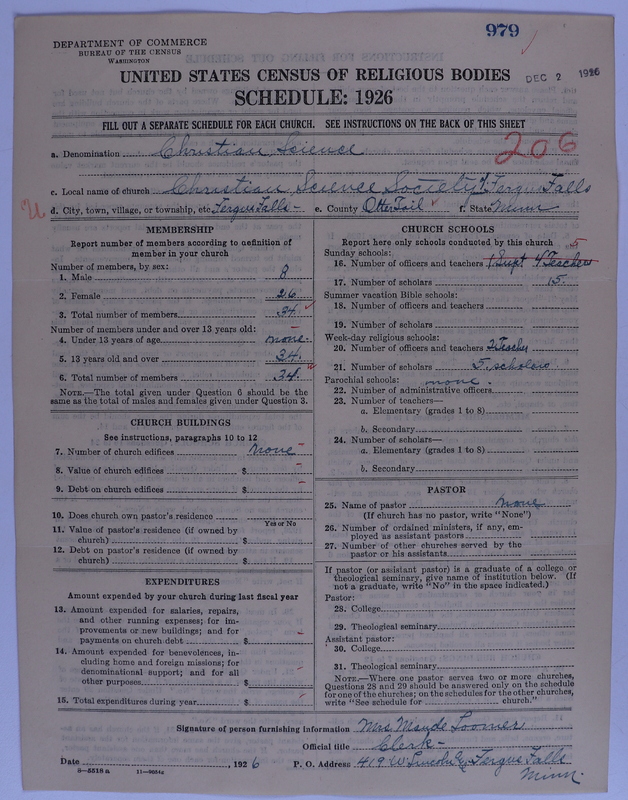 979
DEPARTMENT OF COMMERCE
BUREAU OF THE CENSUS
WASHINGTON
UNITED STATES CENSUS OF RELIGIOUS BODIES
DEC 2 1926
SCHEDULE: 1926
FILL OUT A SEPARATE SCHEDULE FOR EACH CHURCH. SEE INSTRUCTIONS ON THE BACK OF THIS SHEET
206
a. Denomination Christian Science
c. Local name of church Christian Science Society of Fergus Falls
d. City, town, village, or township, etc. Fergus Falls - e. County Otter Tail f. State Minn
MEMBERSHIP
Report number of members according to definition of
member in your church
Number of members, by sex:
1. Male 8
2. Female 26
3. Total number of members 34
Number of members under and over 13 years old:
4. Under 13 years of age none
5. 13 years old and over 34
6. Total number of members 34
NOTE.—The total given under Question 6 should be
same as the total of males and females given under Question 3.
CHURCH BUILDINGS
See instructions, paragraphs 10 to 12
7. Number of church edifices none
8. Value of church edifices $
9. Debt on church edifices $
10. Does church own pastor's residence
Yes or No
11. Value of pastor's residence (if owned by
church) $
12. Debt on pastor's residence (if owned by
church) $
EXPENDITURES
Amount expended by your church during last fiscal year
13. Amount expended for salaries, repairs,
and other running expenses; for im-
provements or new buildings; and for
payments on church debt $
14. Amount expended for benevolences, in-
cluding home and foreign missions; for
denominational support; and for all
other purposes $
15. Total expenditures during year $
CHURCH SCHOOLS
Report here only schools conducted by this church
5
Sunday schools:
16. Number of officers and teachers 1 Supt 4 Teachers
17. Number of scholars 15.
Summer vacation Bible schools:
18. Number of officers and teachers
19. Number of scholars
Week-day religious schools:
20. Number of officers and teachers Teacher
21. Number of scholars 5. scholars
Parochial schools: none.
22. Number of administrative officers
23. Number of teachers—
a. Elementary (grades 1 to 8)
b. Secondary
24. Number of scholars—
a. Elementary (grades 1 to 8)
b. Secondary
PASTOR
25. Name of pastor None
(If church has no pastor, write "None")
26. Number of ordained ministers, if any, em-
ployed as assistant pastors
27. Number of other churches served by the
pastor or his assistants
If pastor (or assistant pastor) is a graduate of a college or
theological seminary, give name of institution below. (If
not a graduate, write "No" in the space indicated.)
Pastor:
28. College
29. Theological seminary
Assistant pastor:
30. College
31. Theological seminary
NOTE.—Where one pastor serves two or more churches,
Questions 28 and 29 should be answered only on the schedule
for one of the churches; on the schedules for the other churches,
write "See schedule for church."
Signature of person furnishing information Mrs Maude Loomer
Official title Clerk -
Date , 1926 P. O. Address 419 W Lincoln Fergus Falls
Minn.
8—5518a 11—9054z